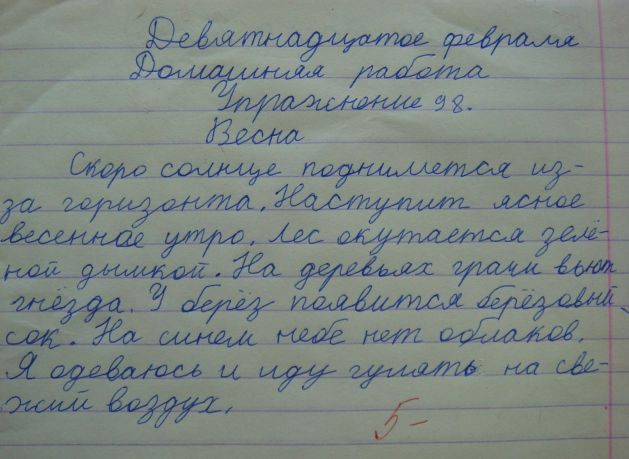 Девятнадцатое февраля
Домашняя работа
Упражнение 98.
Весна
Скоро солнце поднимется из-
за горизонта. Наступит ясное
весеннее утро. Лес окутается зелё-
ной дымкой. На деревьях грачи вьют
гнёзда. У берёз появится берёзовый
сок. На синем небе нет облаков.
Я одеваюсь и иду гулять на све-
жий воздух.
5-